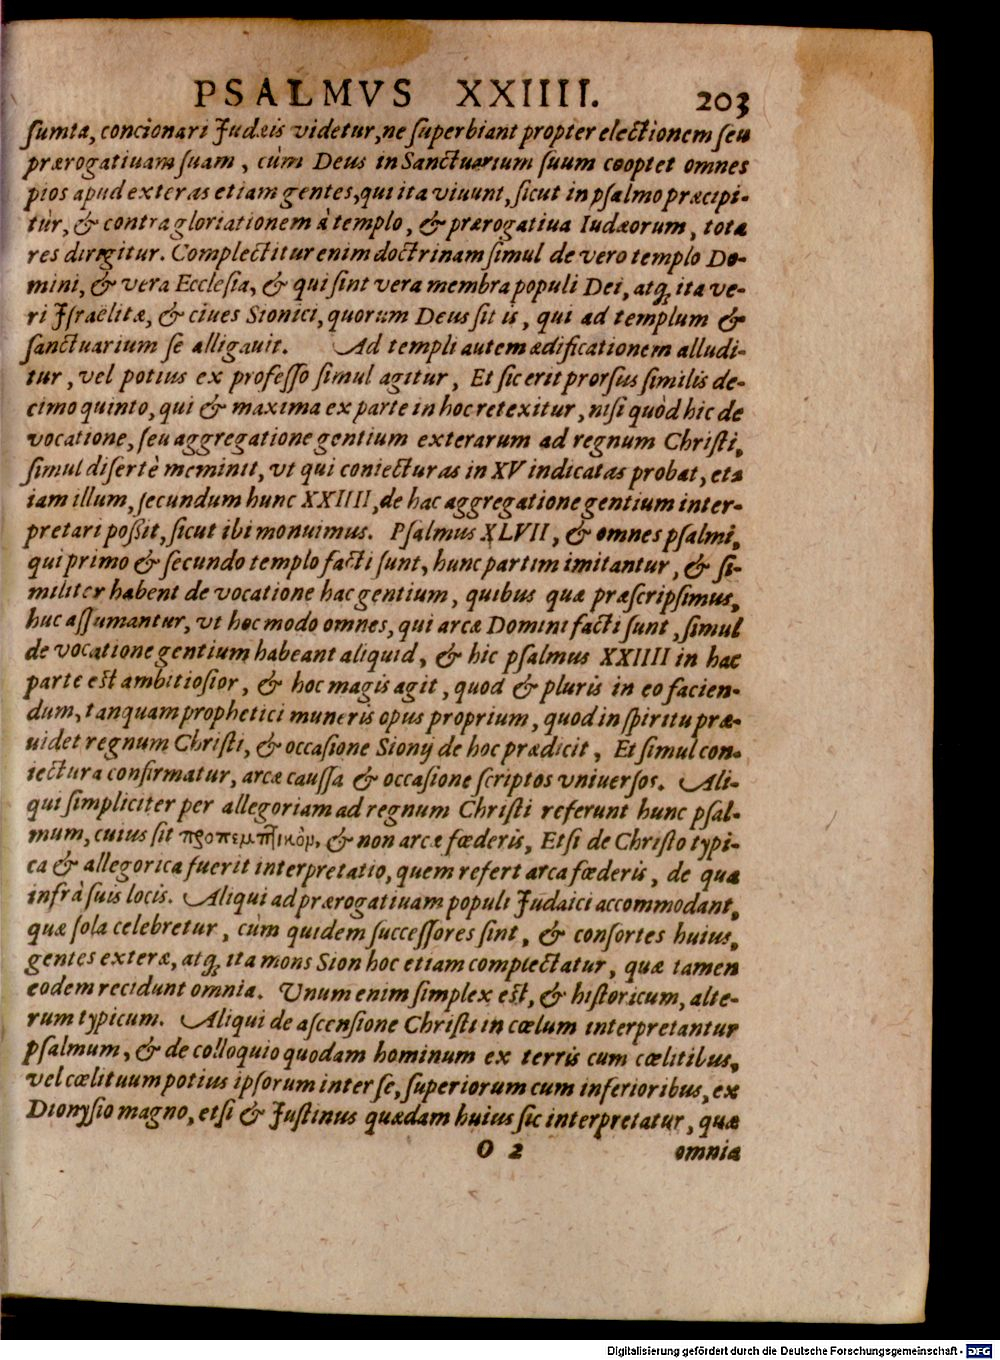 PSALMVS XXIIII. 203
sumta, concionari Judæis videtur, ne superbiant propter electionem seu
prærogatiuam suam, cùm Deus in Sanctuarium suum cooptet omnes
pios apud exteras etiam gentes, qui ita viuunt, sicut in psalmo præcipi-
tur, & contra gloriationem à templo, & prærogatiua Iudæorum, tota
res dirigitur. Complectitur enim doctrinam simul de vero templo Do-
mini, & vera Ecclesia, & qui sint vera membra populi Dei, atq; ita ve-
ri Israëlitæ, & ciues Sionici, quorum Deus sit is, qui ad templum &
sanctuarium se alligauit. Ad templi autem ædificationem alludi-
tur, vel potius ex professo simul agitur, Et sic erit prorsus similis de-
cimo quinto, qui & maxima ex parte in hoc retexitur, nisi quòd hic de
vocatione, seu aggregatione gentium exterarum ad regnum Christi,
simul disertè meminit, vt qui coniecturas in XV indicatas probat, eta
iam illum, secundum hunc XXIIII, de hac aggregatione gentium inter-
pretari poßit, sicut ibi monuimus. Psalmus XLVII, & omnes psalmi,
qui primo & secundo templo facti sunt, hunc partim imitantur, & si-
militer habent de vocatione hac gentium, quibus quæ præscripsimus,
huc assumantur, vt hoc modo omnes, qui arcæ Domini facti sunt, simul
de vocatione gentium habeant aliquid, & hic psalmus XXIIII in hac
parte est ambitiosior, & hoc magis agit, quod & pluris in eo facien-
dum, tanquam prophetici muneris opus proprium, quod in spiritu præ-
uidet regnum Christi, & occasione Sionij de hoc prædicit, Et simul con-
iectura confirmatur, arcæ caussa & occasione scriptos vniuersos. Ali-
qui simpliciter per allegoriam ad regnum Christi referunt hunc psal-
mum, cuius sit προπεμπτικὸν, & non arcæ fœderis, Etsi de Christo typi-
ca & allegorica fuerit interpretatio, quem refert arca fœderis, de qua
infrà suis locis. Aliqui ad prærogatiuam populi Judaici accommodant,
quæ sola celebretur, cùm quidem successores sint, & consortes huius,
gentes exteræ, atq; ita mons Sion hoc etiam complectatur, quæ tamen
eodem recidunt omnia. Unum enim simplex est, & historicum, alte-
rum typicum. Aliqui de ascensione Christi in cœlum interpretantur
psalmum, & de colloquio quodam hominum ex terris cum cœlitibus,
vel cœlituum potius ipsorum inter se, superiorum cum inferioribus, ex
Dionysio magno, etsi & Justinus quædam huius sic interpretatur, quæ
O 2 omnia
Digitalisierung gefördert durch die Deutsche Forschungsgemeinschaft - DFG